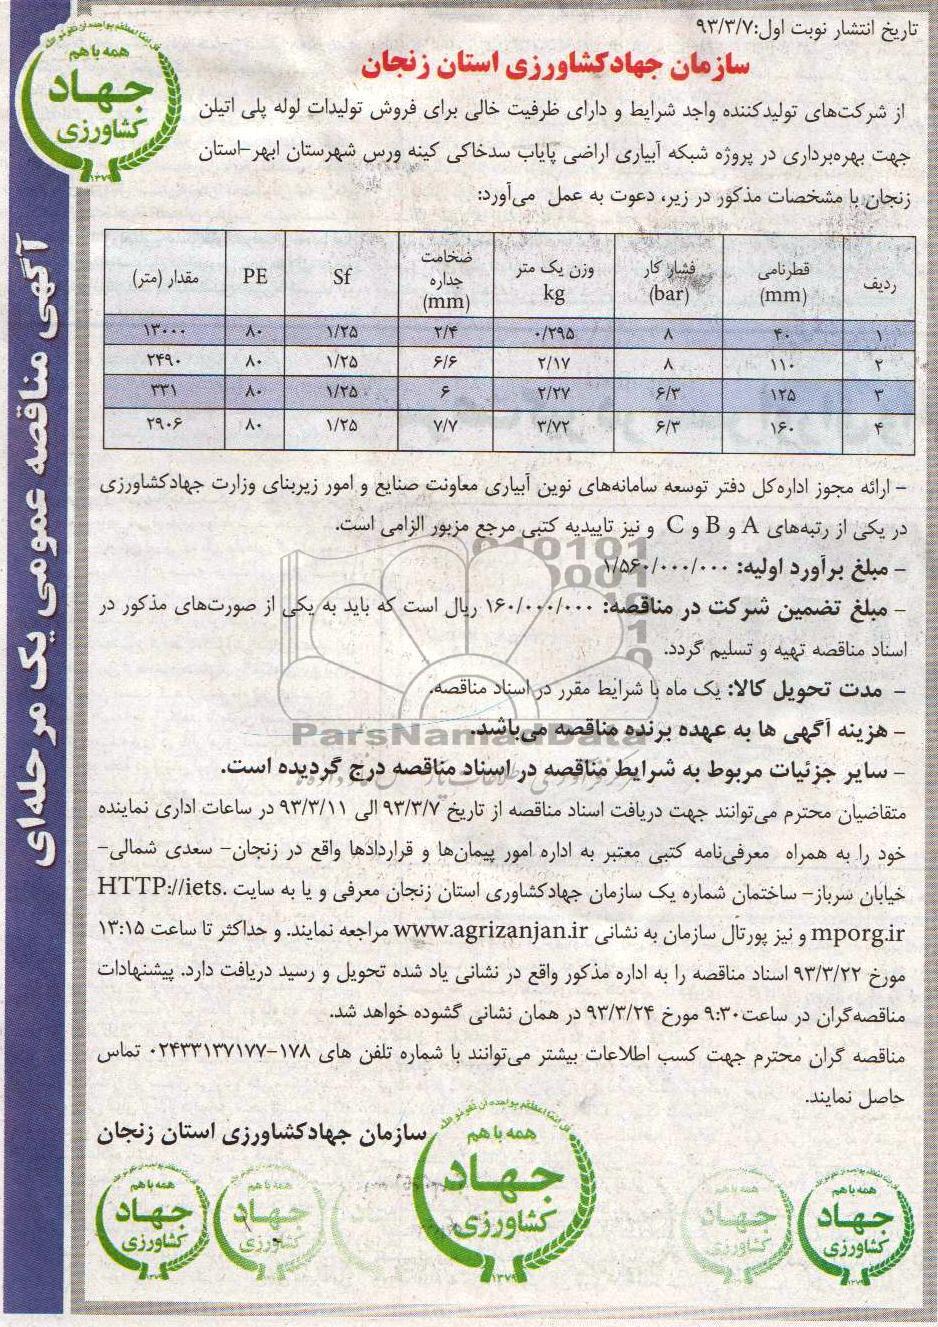 تاریخ انتشار نوبت اول:۹۳/۳/۷
سازمان جهادکشاورزی استان زنجان
همه با هم
جهاد
کشاورزی
۱۳۷۹
آگهی مناقصه عمومی یک مرحله‌ای
از شرکت‌های تولیدکننده واجد شرایط و دارای ظرفیت خالی برای فروش تولیدات لوله پلی اتیلن
جهت بهره‌برداری در پروژه شبکه آبیاری اراضی پایاب سدخاکی کینه ورس شهرستان ابهر-استان
زنجان با مشخصات مذکور در زیر، دعوت به عمل می‌آورد:
ردیف قطرنامی (mm) فشار کار (bar) وزن یک متر kg ضخامت جداره (mm) Sf PE مقدار (متر)
۱ ۴۰ ۸ ۰/۲۹۵ ۲/۴ ۱/۲۵ ۸۰ ۱۳۰۰۰
۲ ۱۱۰ ۸ ۲/۱۷ ۶/۶ ۱/۲۵ ۸۰ ۲۴۹۰
۳ ۱۲۵ ۶/۳ ۲/۲۷ ۶ ۱/۲۵ ۸۰ ۳۳۱
۴ ۱۶۰ ۶/۳ ۳/۷۲ ۷/۷ ۱/۲۵ ۸۰ ۲۹۰۶
- ارائه مجوز اداره‌کل دفتر توسعه سامانه‌های نوین آبیاری معاونت صنایع و امور زیربنای وزارت جهادکشاورزی
در یکی از رتبه‌های A و B و C و نیز تاییدیه کتبی مرجع مزبور الزامی است.
- مبلغ برآورد اولیه: ۱/۵۶۰/۰۰۰/۰۰۰
- مبلغ تضمین شرکت در مناقصه: ۱۶۰/۰۰۰/۰۰۰ ریال است که باید به یکی از صورت‌های مذکور در
اسناد مناقصه تهیه و تسلیم گردد.
- مدت تحویل کالا: یک ماه با شرایط مقرر در اسناد مناقصه.
- هزینه آگهی ها به عهده برنده مناقصه می‌باشد.
ParsNamadData
- سایر جزئیات مربوط به شرایط مناقصه در اسناد مناقصه درج گردیده است.
متقاضیان محترم می‌توانند جهت دریافت اسناد مناقصه از تاریخ ۹۳/۳/۷ الی ۹۳/۳/۱۱ در ساعات اداری نماینده
خود را به همراه معرفی‌نامه کتبی معتبر به اداره امور پیمان‌ها و قراردادها واقع در زنجان- سعدی شمالی-
خیابان سرباز- ساختمان شماره یک سازمان جهادکشاوری استان زنجان معرفی و یا به سایت HTTP://iets.
mporg.ir و نیز پورتال سازمان به نشانی www.agrizanjan.ir مراجعه نمایند. و حداکثر تا ساعت ۱۳:۱۵
مورخ ۹۳/۳/۲۲ اسناد مناقصه را به اداره مذکور واقع در نشانی یاد شده تحویل و رسید دریافت دارد. پیشنهادات
مناقصه‌گران در ساعت۹:۳۰ مورخ ۹۳/۳/۲۴ در همان نشانی گشوده خواهد شد.
مناقصه گران محترم جهت کسب اطلاعات بیشتر می‌توانند با شماره تلفن های ۱۷۸-۰۲۴۳۳۱۳۷۱۷۷ تماس
حاصل نمایند.
سازمان جهادکشاورزی استان زنجان
همه با هم
جهاد
کشاورزی
۱۳۷۹
همه با هم
جهاد
کشاورزی
۱۳۷۹
همه با هم
جهاد
کشاورزی
همه با هم
جهاد
کشاورزی
همه با هم
جهاد
کشاورزی
۱۳۷۹